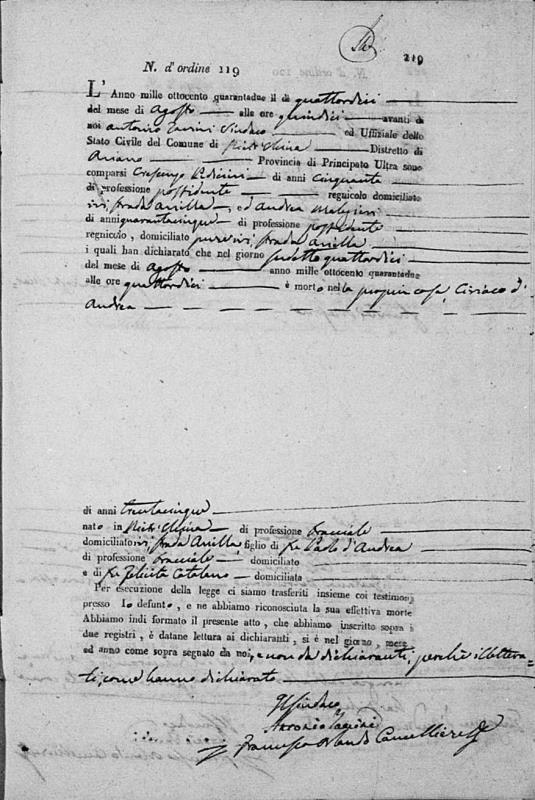 219
N. d'ordine 119
L'Anno mille ottocento quarantadue il di quattordici
del mese di Agosto alle ore quindici avanti di
noi Antonio Sindaco ed Uffiziale dello
Stato Civile del Comune di Distretto di
Ariano Provincia di Principato Ultra sono
comparsi Crescenzo di anni cinquanta
di professione possidente regnicolo domiciliato
ivi, strada Anilla, ed Andrea
di anni quarantacinque di professione possidente
regnicolo, domiciliato pure ivi, strada Anilla
i quali han dichiarato che nel giorno sudetto quattordici
del mese di Agosto anno mille ottocento quarantadue
alle ore quattordici è morto nella propria casa, Ciriaco d'
Andrea
di anni trentacinque
nato in di professione bracciale
domiciliato ivi, strada Anilla, figlio di fu Paolo d'Andrea
di professione bracciale domiciliato
e di fu Felicita Catalano domiciliata
Per esecuzione della legge ci siamo trasferiti insieme coi testimonj
presso lo defunto, e ne abbiamo riconosciuta la sua effettiva morte
Abbiamo indi formato il presente atto, che abbiamo inscritto sopra i
due registri, è datane lettura ai dichiaranti, si è nel giorno, mese
ed anno come sopra segnato da noi, e non da dichiaranti, perchè illettera=
ti, come hanno dichiarato
Il Sindaco
Antonio
Francesco Orlando Cancelliere